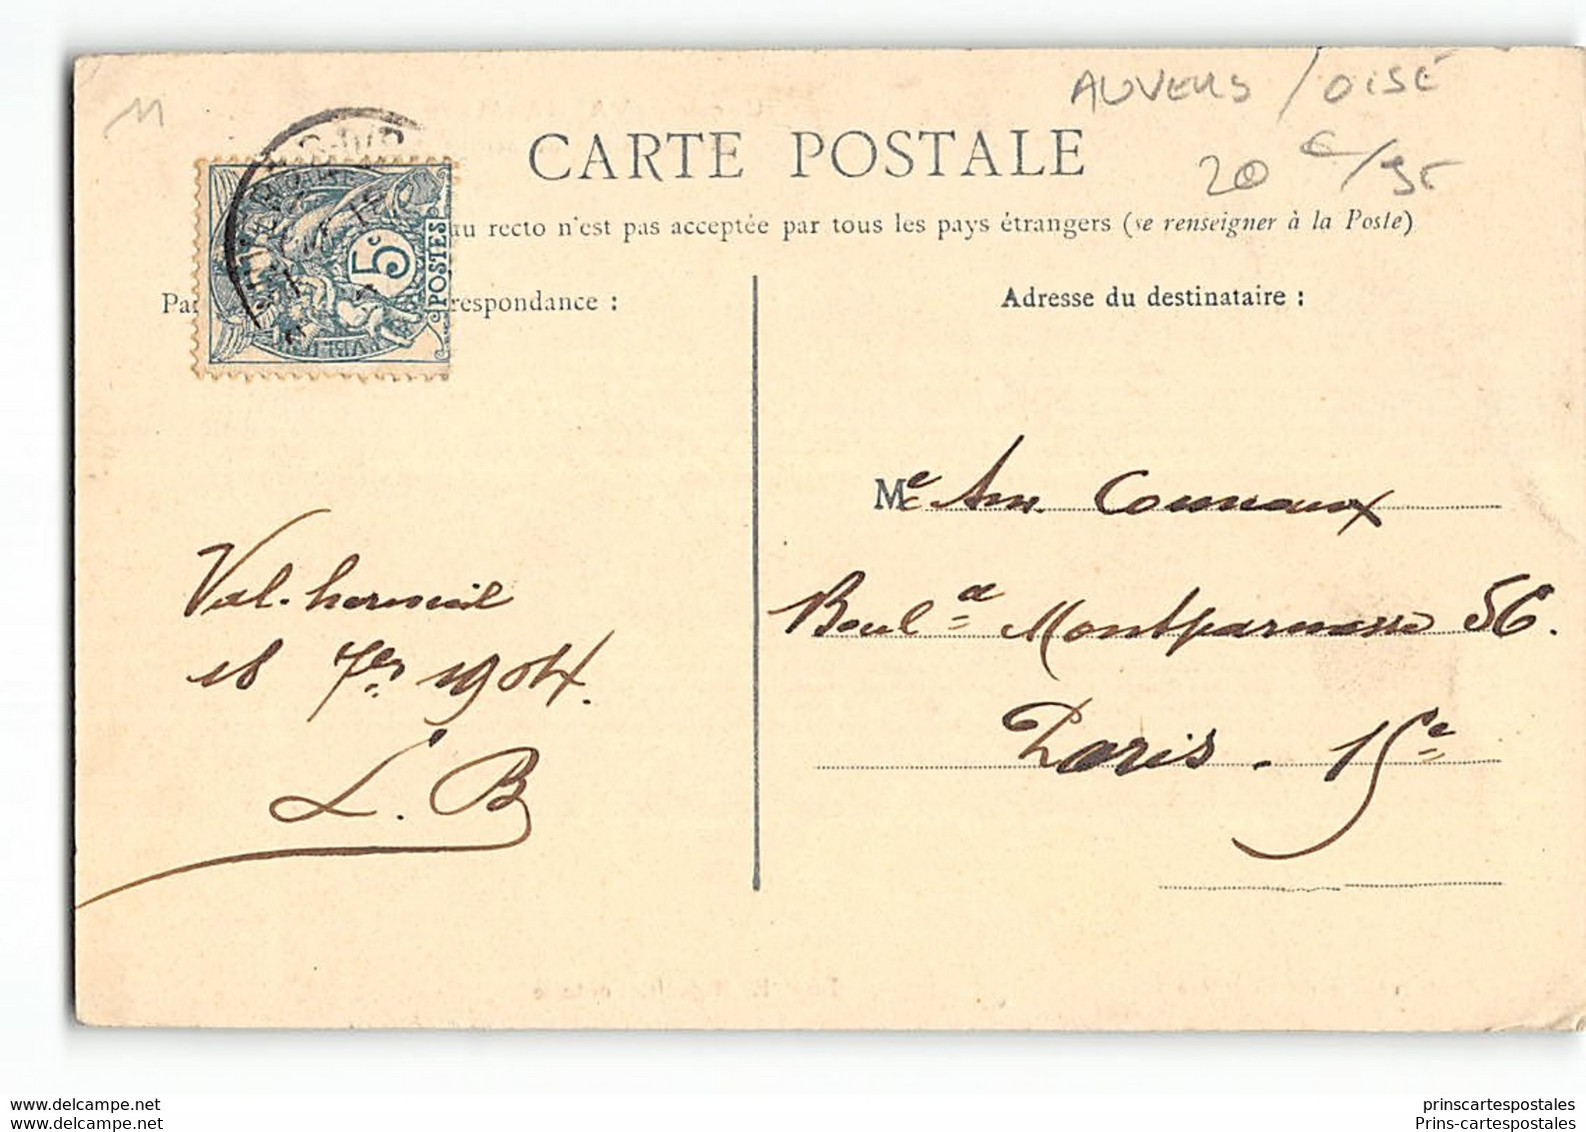 11
AUVERS / OISE
CARTE POSTALE
20 € / 95
au recto n'est pas acceptée par tous les pays étrangers (se renseigner à la Poste)
5c
POSTES
Pa respondance :
Adresse du destinataire :
Me Connaux
Boul.d Montparnasse 56.
Paris. 15e
Val-hermeil
18 7es 1904.
L. B
www.delcampe.net
www.delcampe.net
prinscartespostales
Prins-cartespostales